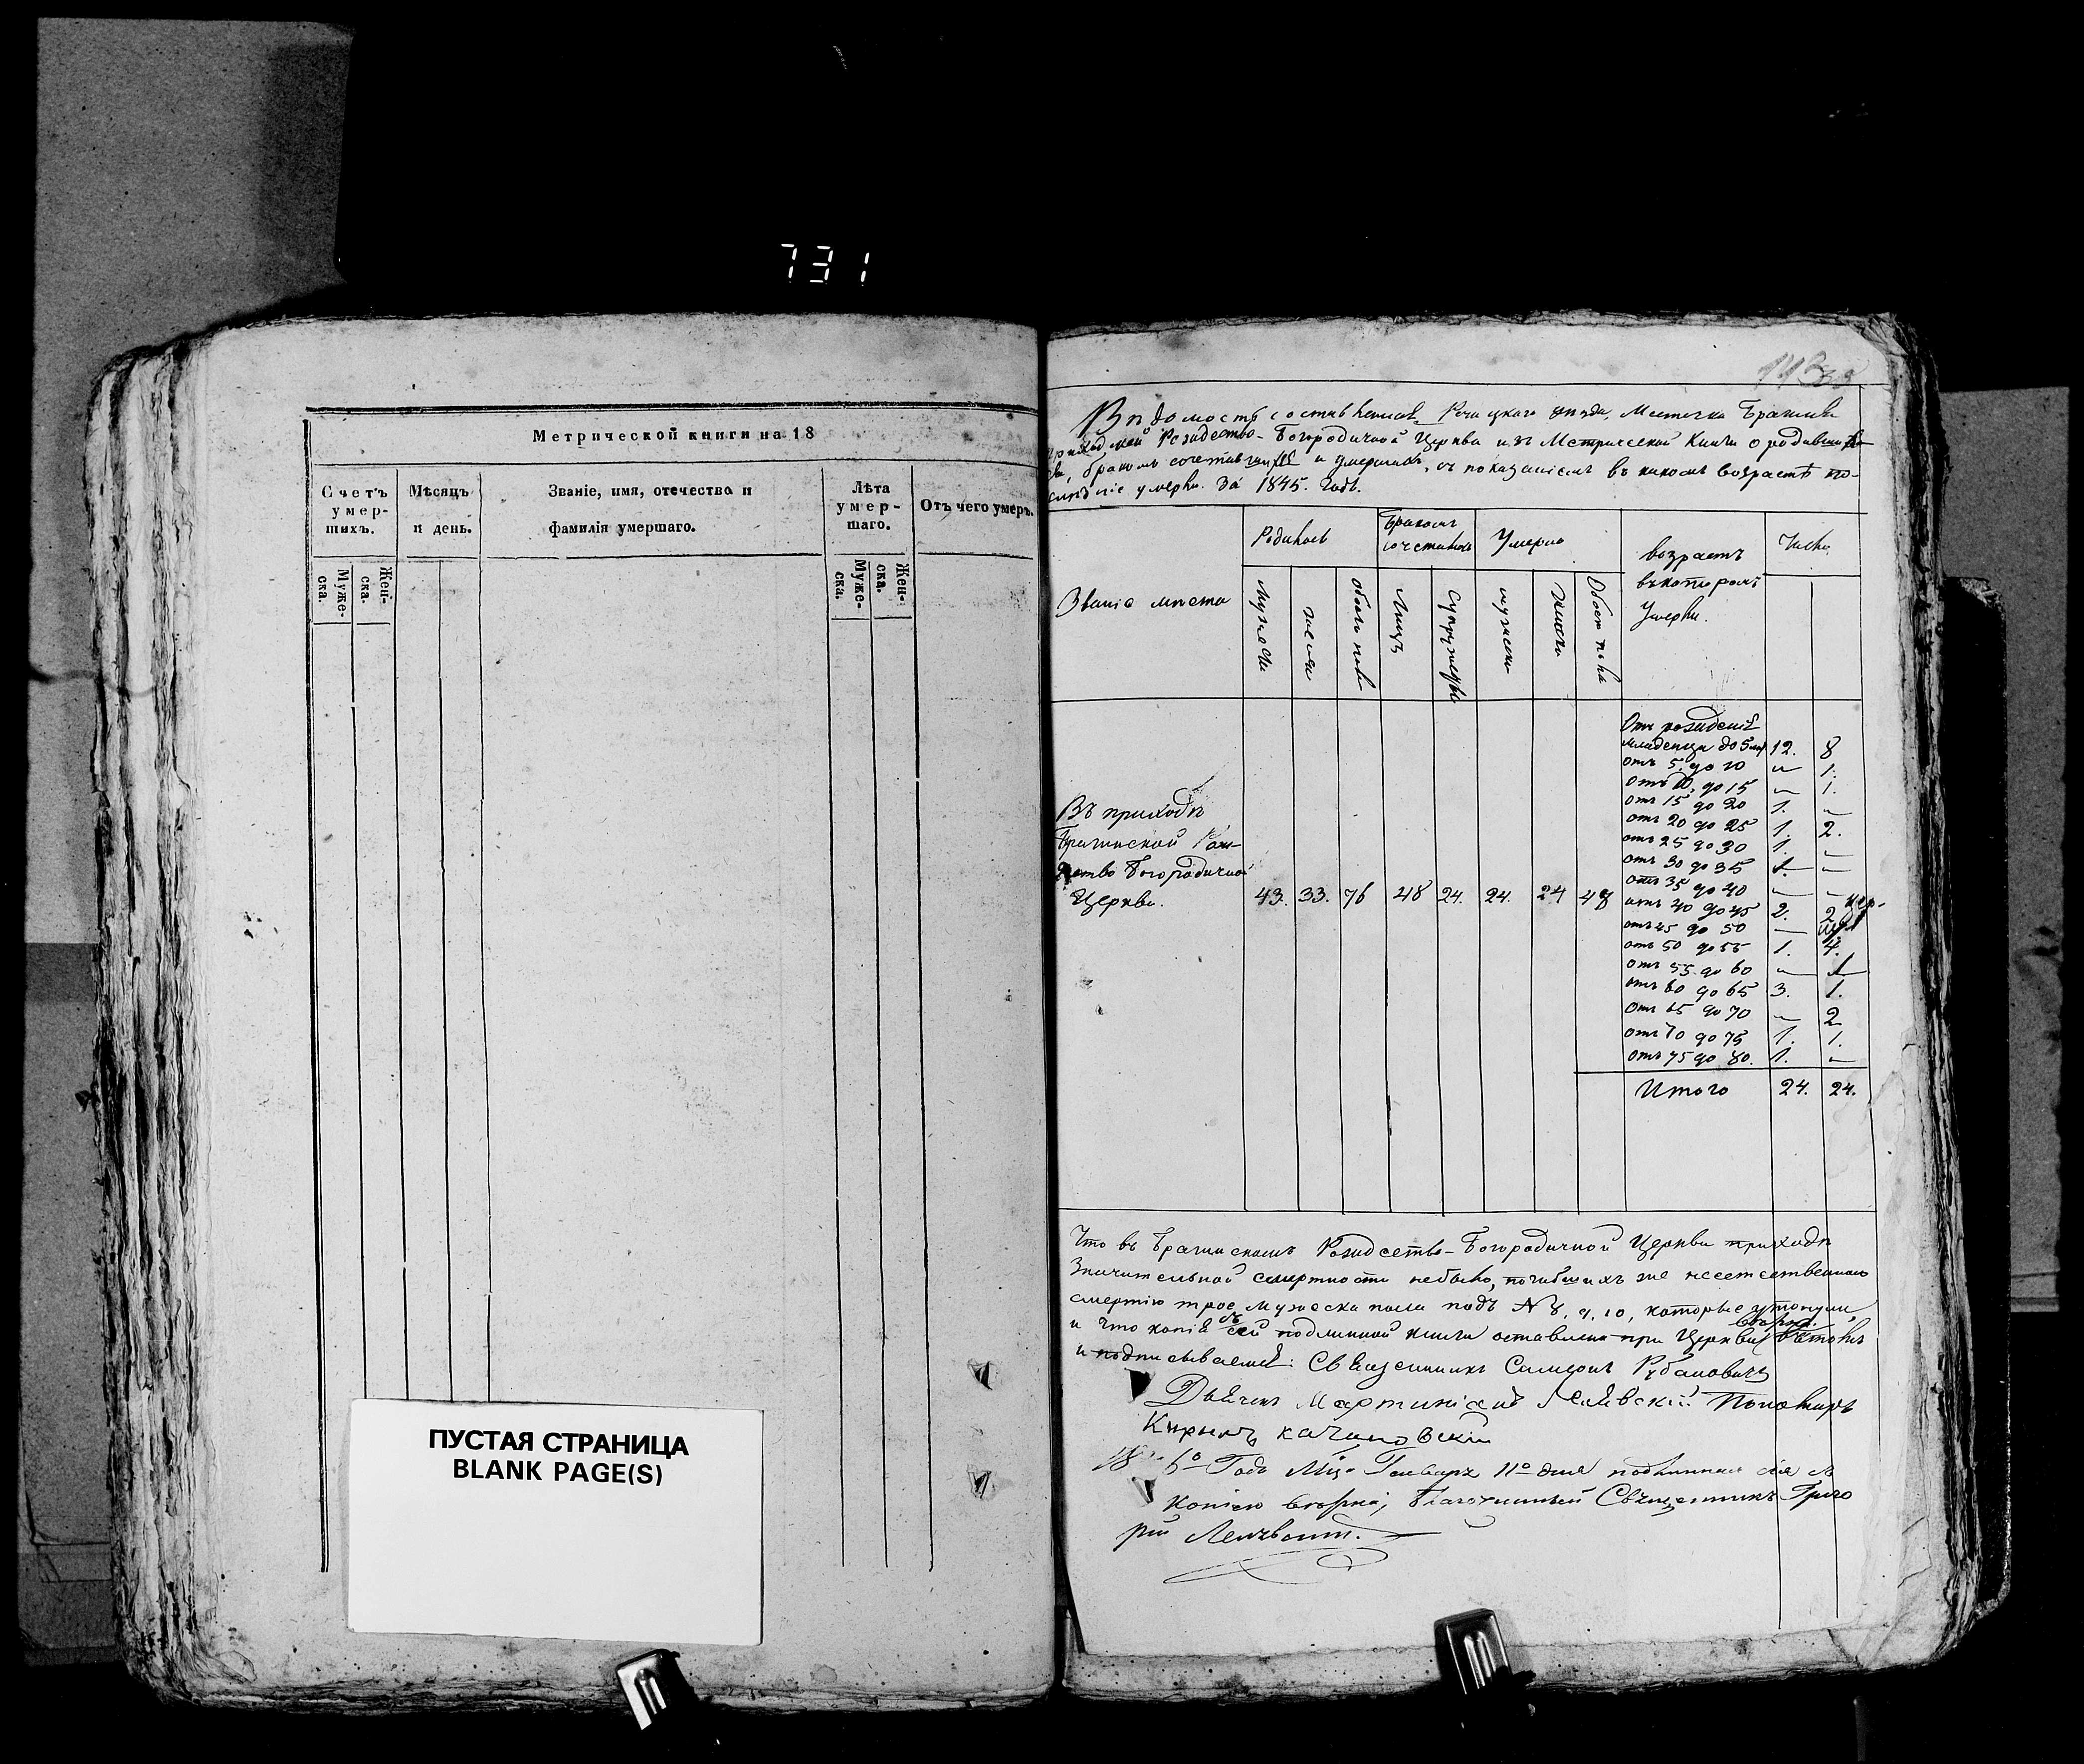 731
Метрической книги на 18
Счетъ умер-шихъ.
Муже-ска.
Жен-ска.
Мѣсяцъ и день.
Званіе, имя, отечество и
фамилія умершаго.
Лѣта умер-шаго.
Муже-ска.
Жен-ска.
Отъ чего умеръ.
ПУСТАЯ СТРАНИЦА
BLANK PAGE(S)
Вѣдомость составленная Рѣчицкаго уѣзда, Мѣстечка Брагина
приходской Рождество-Богородичной Церкви изъ Метрической Книги о родившихся
бракомъ сочетавшихся и умершихъ, съ показаніемъ въ какомъ возрастѣ по-
слѣдніе умерли. За 1845. Годъ.
Званіе мѣста
Родилось
Мужеска
женска
обоего пола
Бракомъ сочеталось
Лицъ
Супружествъ
Умерло
мужеска
Женска
Обоего пола
возрастъ
въ которомъ
Умерли.
Число
Въ приходѣ
Брагинской Рож-
дество Богородичной
Церкви.
43. 33. 76 48 24. 24. 24 48
Отъ рожденія
младенца до 5 лѣтъ 12. 8
отъ 5. до 10 — 1.
отъ 10. до 15 — 1.
отъ 15 до 20 1. —
отъ 20 до 25 1. 2.
отъ 25 до 30 1. —
отъ 30 до 35 1. —
отъ 35 до 40 — —
отъ 40 до 45 2. 2
отъ 45 до 50 —
отъ 50 до 55 1. 4.
отъ 55 до 60 — 1
отъ 60 до 65 3. 1.
отъ 65 до 70 — 2
отъ 70 до 75 1. 1.
отъ 75 до 80. 1. —
Итого 24. 24.
Что въ Брагинскомъ Рождество-Богородичной Церкви приходѣ
значительной смертности небыло, погибшихъ же неестественною
смертію трое мужеска пола подъ № 8, 9, 10, которые утонули,
и что копія съ сей подлинной книги оставлена при Церкви вѣрна. въ томъ
и подписываемся: Священникъ Самсонъ Рубановичъ
Дьячекъ Пономарь
Кирилъ Качановскій
6го Года Мца Генваря 11го дня подлинная сія съ
копіею вѣрна; Благочинный Священникъ Григо
рій